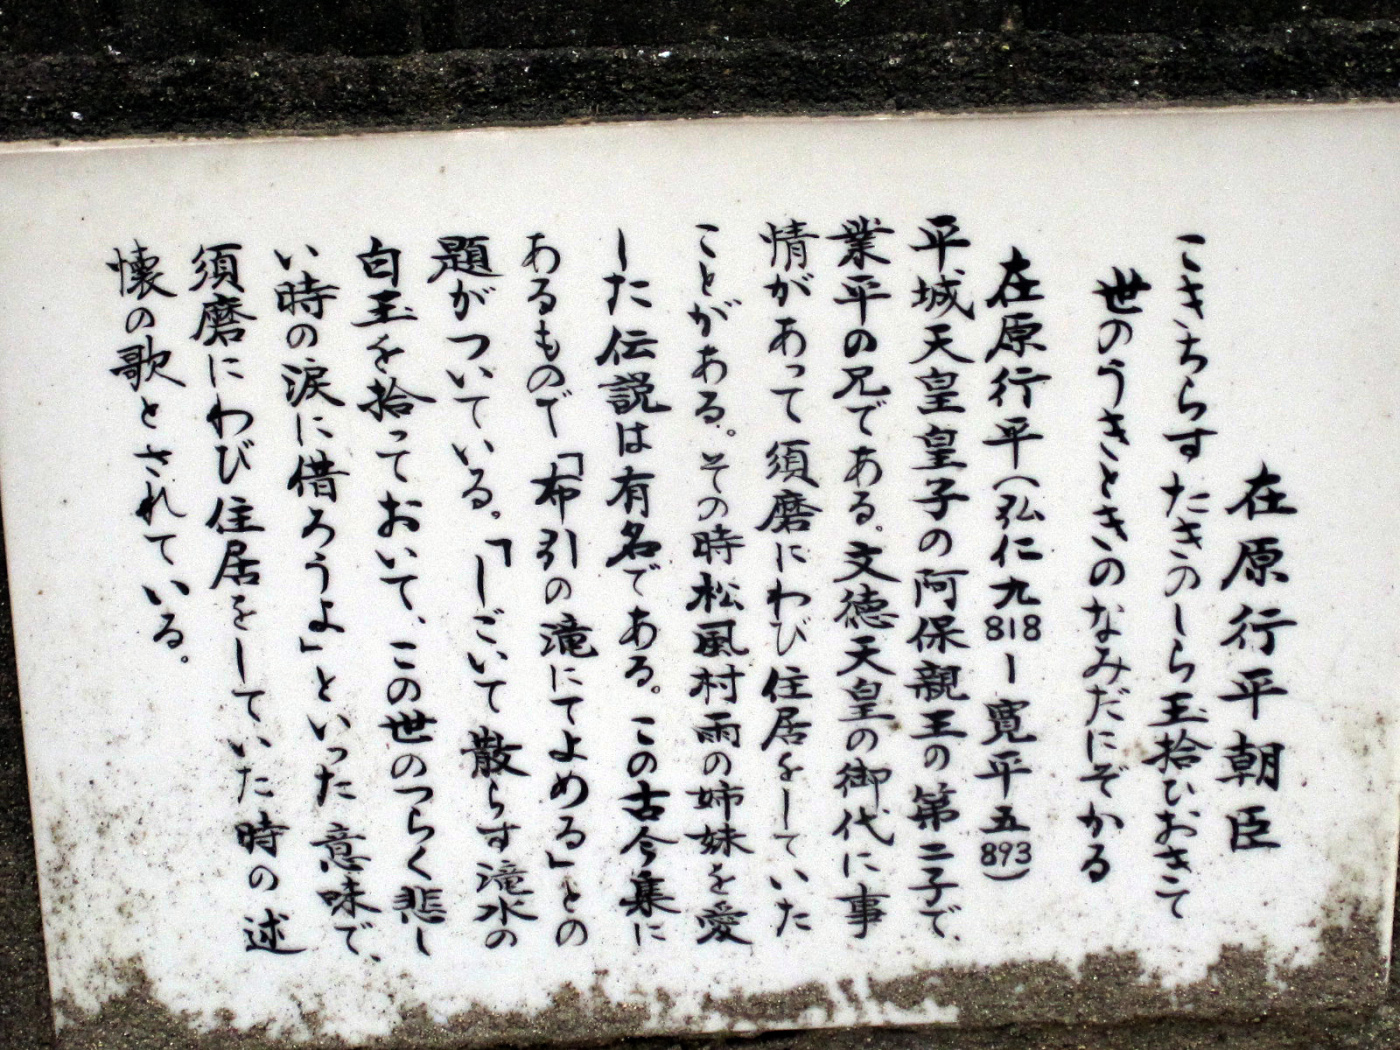 在原行平朝臣
こきちらすたきのしら玉拾ひおきて
世のうきときのなみだにぞかる
在原行平(弘仁九818ー寛平五893)
平城天皇皇子の阿保親王の第二子で、
業平の兄である。文徳天皇の御代に事
情があって須磨にわび住居をしていた
ことがある。その時松風村雨の姉妹を愛
した伝説は有名である。この古今集に
あるもので「布引の滝にてよめる」との
題がついている。「しごいて散らす滝水の
白玉を拾っておいて、この世のつらく悲し
い時の涙に借ろうよ」といった意味で、
須磨にわび住居をしていた時の述
懐の歌とされている。